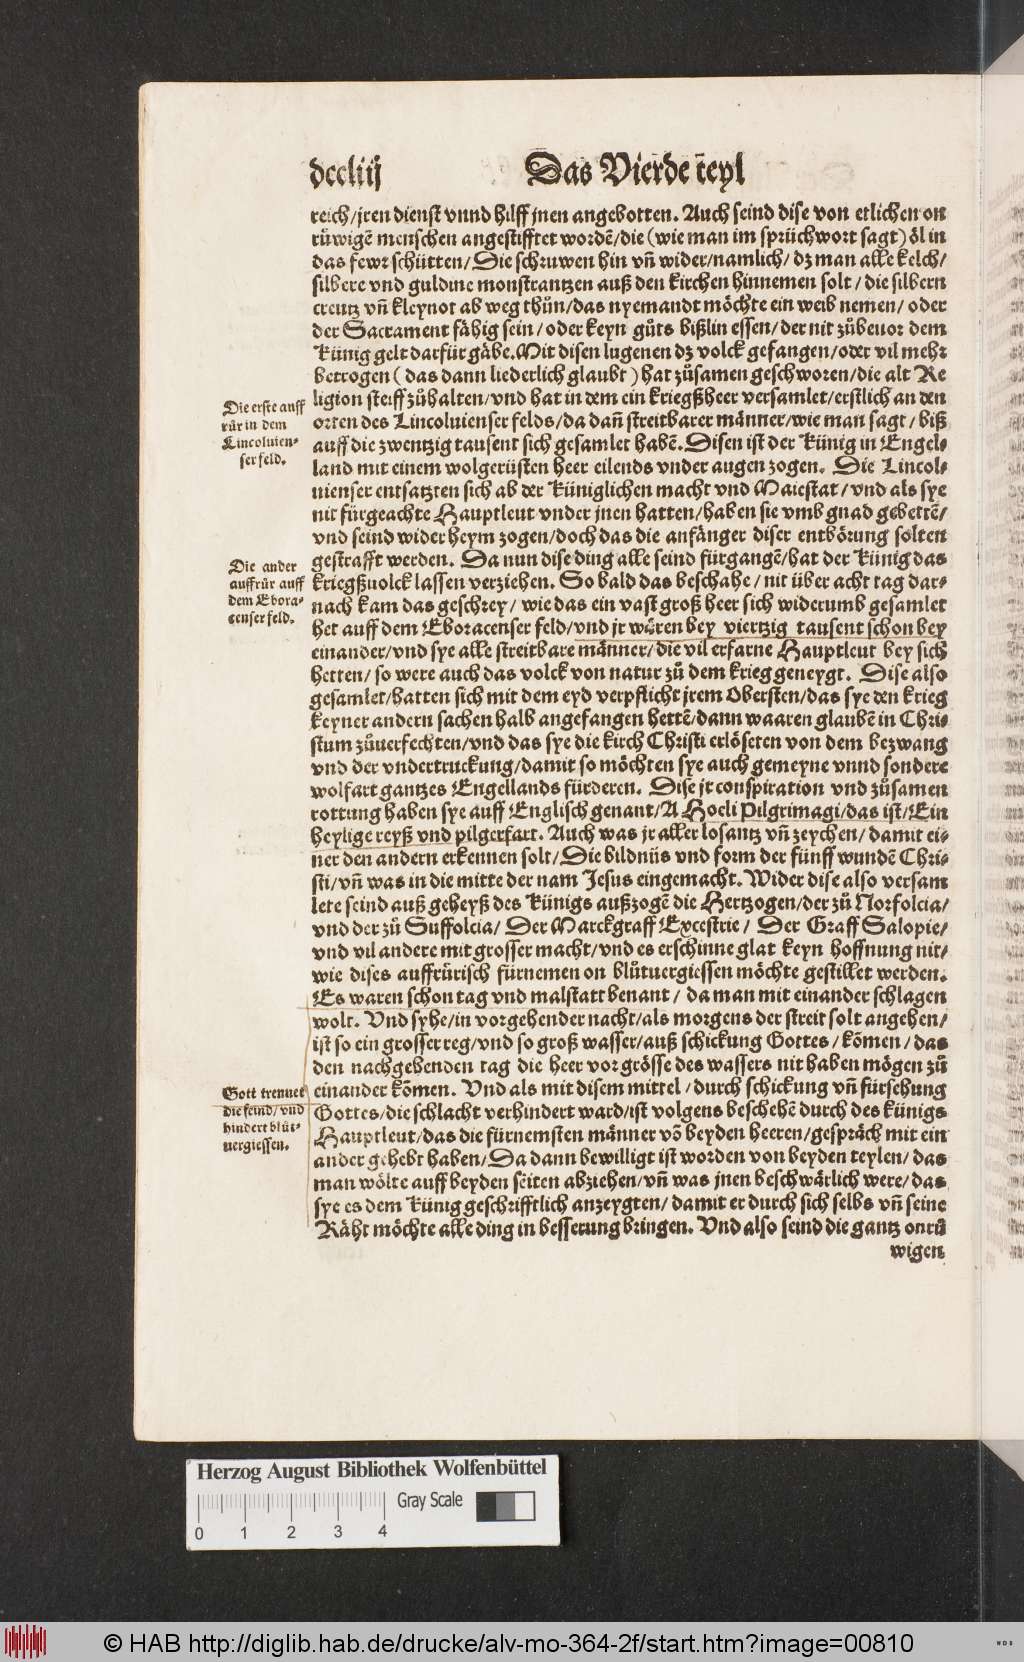 dccliij
Das Vierde teyl
reich/jren dienst vnnd hilff jnen angebotten. Auch seind dise von etlichen on
rüwigē menschen angestifftet wordē/die (wie man im sprüchwort sagt) öl in
das fewr schütten/Die schruwen hin vñ wider/namlich/dz man alle kelch/
silbere vnd guldine monstrantzen auß den kirchen hinnemen solt/die silbern
creutz vñ kleynot ab weg thůn/das nyemandt möchte ein weib nemen/oder
der Sacrament fähig sein/oder keyn gůts bißlin essen/der nit zůbeuor dem
Künig gelt darfür gäbe. Mit disen lugenen dz volck gefangen/oder vil mehr
betrogen (das dann liederlich glaubt) hat zůsamen geschworen/die alt Re
ligion steiff zůhalten/vnd hat in dem ein kriegßheer versamlet/erstlich an den
Die erste auff
růr in dem
Lincoluien-
ser feld.
orten des Lincoluienser felds/da dañ streitbarer männer/wie man sagt/biß
auff die zwentzig tausent sich gesamlet habē. Disen ist der Künig in Engel-
land mit einem wolgerüsten heer eilends vnder augen zogen. Die Lincol-
uienser entsatzten sich ab der Küniglichen macht vnd Maiestat/vnd als sye
nit fürgeachte Hauptleut vnder jnen hatten/haben sie vmb gnad gebettē/
vnd seind wider heym zogen/doch das die anfänger diser entbörung solten
gestrafft werden. Da nun dise ding alle seind fürgangē/hat der Künig das
Die ander
auffrůr auff
dem Ebora-
censer feld.
kriegßuolck lassen verziehen. So bald das beschahe/nit über acht tag dar-
nach kam das geschrey/wie das ein vast groß heer sich widerumb gesamlet
het auff dem Eboracenser feld/vnd jr wären bey viertzig tausent schon bey
einander/vnd sye alle streitbare männer/die vil erfarne Hauptleut bey sich
hetten/so were auch das volck von natur zů dem krieg geneygt. Dise also
gesamlet/hatten sich mit dem eyd verpflicht jrem Obersten/das sye den krieg
keyner andern sachen halb angefangen hettē/dann waaren glaubē in Chri-
stum zůuerfechten/vnd das sye die kirch Christi erlöseten von dem bezwang
vnd der vndertruckung/damit so möchten sye auch gemeyne vnnd sondere
wolfart gantzes Engellands fürderen. Dise jr conspiration vnd zůsamen
rottung haben sye auff Englisch genant/A Hoeli Pilgrimagi/das ist/Ein
heylige reyß vnd pilgerfart. Auch was jr aller losantz vñ zeychen/damit ei-
ner den andern erkennen solt/Die bildnüs vnd form der fünff wundē Chri-
sti/vñ was in die mitte der nam Jesus eingemacht. Wider dise also versam
lete seind auß geheyß des Künigs außzogē die Hertzogen/der zů Norfolcia/
vnd der zů Suffolcia/Der Marckgraff Excestrie/Der Graff Salopie/
vnd vil andere mit grosser macht/vnd es erschinne glat keyn hoffnung nit/
wie dises auffrürisch fürnemen on blůtuergiessen möchte gestillet werden.
Es waren schon tag vnd malstatt benant/da man mit einander schlagen
wolt. Vnd syhe/in vorgehender nacht/als morgens der streit solt angehen/
ist so ein grosser reg/vnd so groß wasser/auß schickung Gottes/kōmen/das
den nachgehenden tag die heer vor grösse des wassers nit haben mögen zů
Gott trennet
die feind/vnd
hindert blůt-
uergiessen.
einander kōmen. Vnd als mit disem mittel/durch schickung vñ fürsehung
Gottes/die schlacht verhindert ward/ist volgens beschehē durch des künigs
Hauptleut/das die fürnemsten männer vō beyden heeren/gespräch mit ein
ander gehebt haben/Da dann bewilligt ist worden von beyden teylen/das
man wölte auff beyden seiten abziehen/vñ was jnen beschwärlich were/das
sye es dem Künig geschrifftlich anzeygten/damit er durch sich selbs vñ seine
Räht möchte alle ding in besserung bringen. Vnd also seind die gantz onrů
wigen
Herzog August Bibliothek Wolfenbüttel
0 1 2 3 4
Gray Scale
© HAB http://diglib.hab.de/drucke/alv-mo-364-2f/start.htm?image=00810